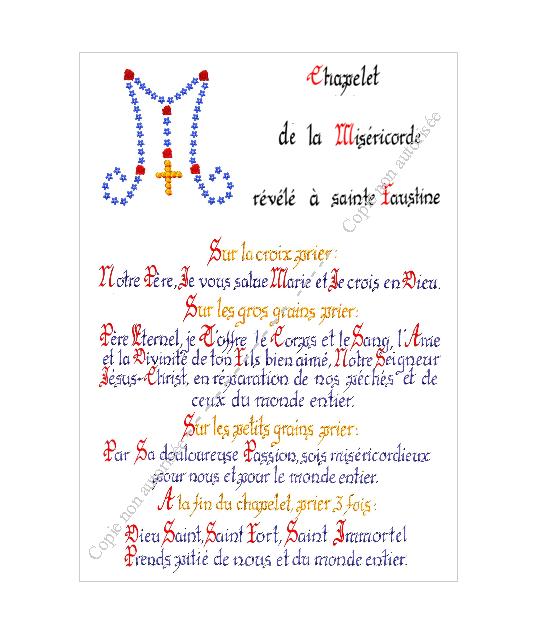 Chapelet
de la Miséricorde
révélé à sainte Faustine
Sur la croix prier:
Notre Père, Je vous salue Marie et Je crois en Dieu.
Sur les gros grains prier:
Père Eternel, je T'offre le Corps et le Sang, l'Ame
et la Divinité de ton Fils bien aimé, Notre Seigneur
Jésus-Christ, en réparation de nos péchés et de
ceux du monde entier.
Sur les petits grains prier:
Par Sa douloureuse Passion, sois miséricordieux
pour nous et pour le monde entier.
A la fin du chapelet, prier 3 fois:
Dieu Saint, Saint Fort, Saint Immortel
Prends pitié de nous et du monde entier.
Copie non autorisée
Copie non autorisée